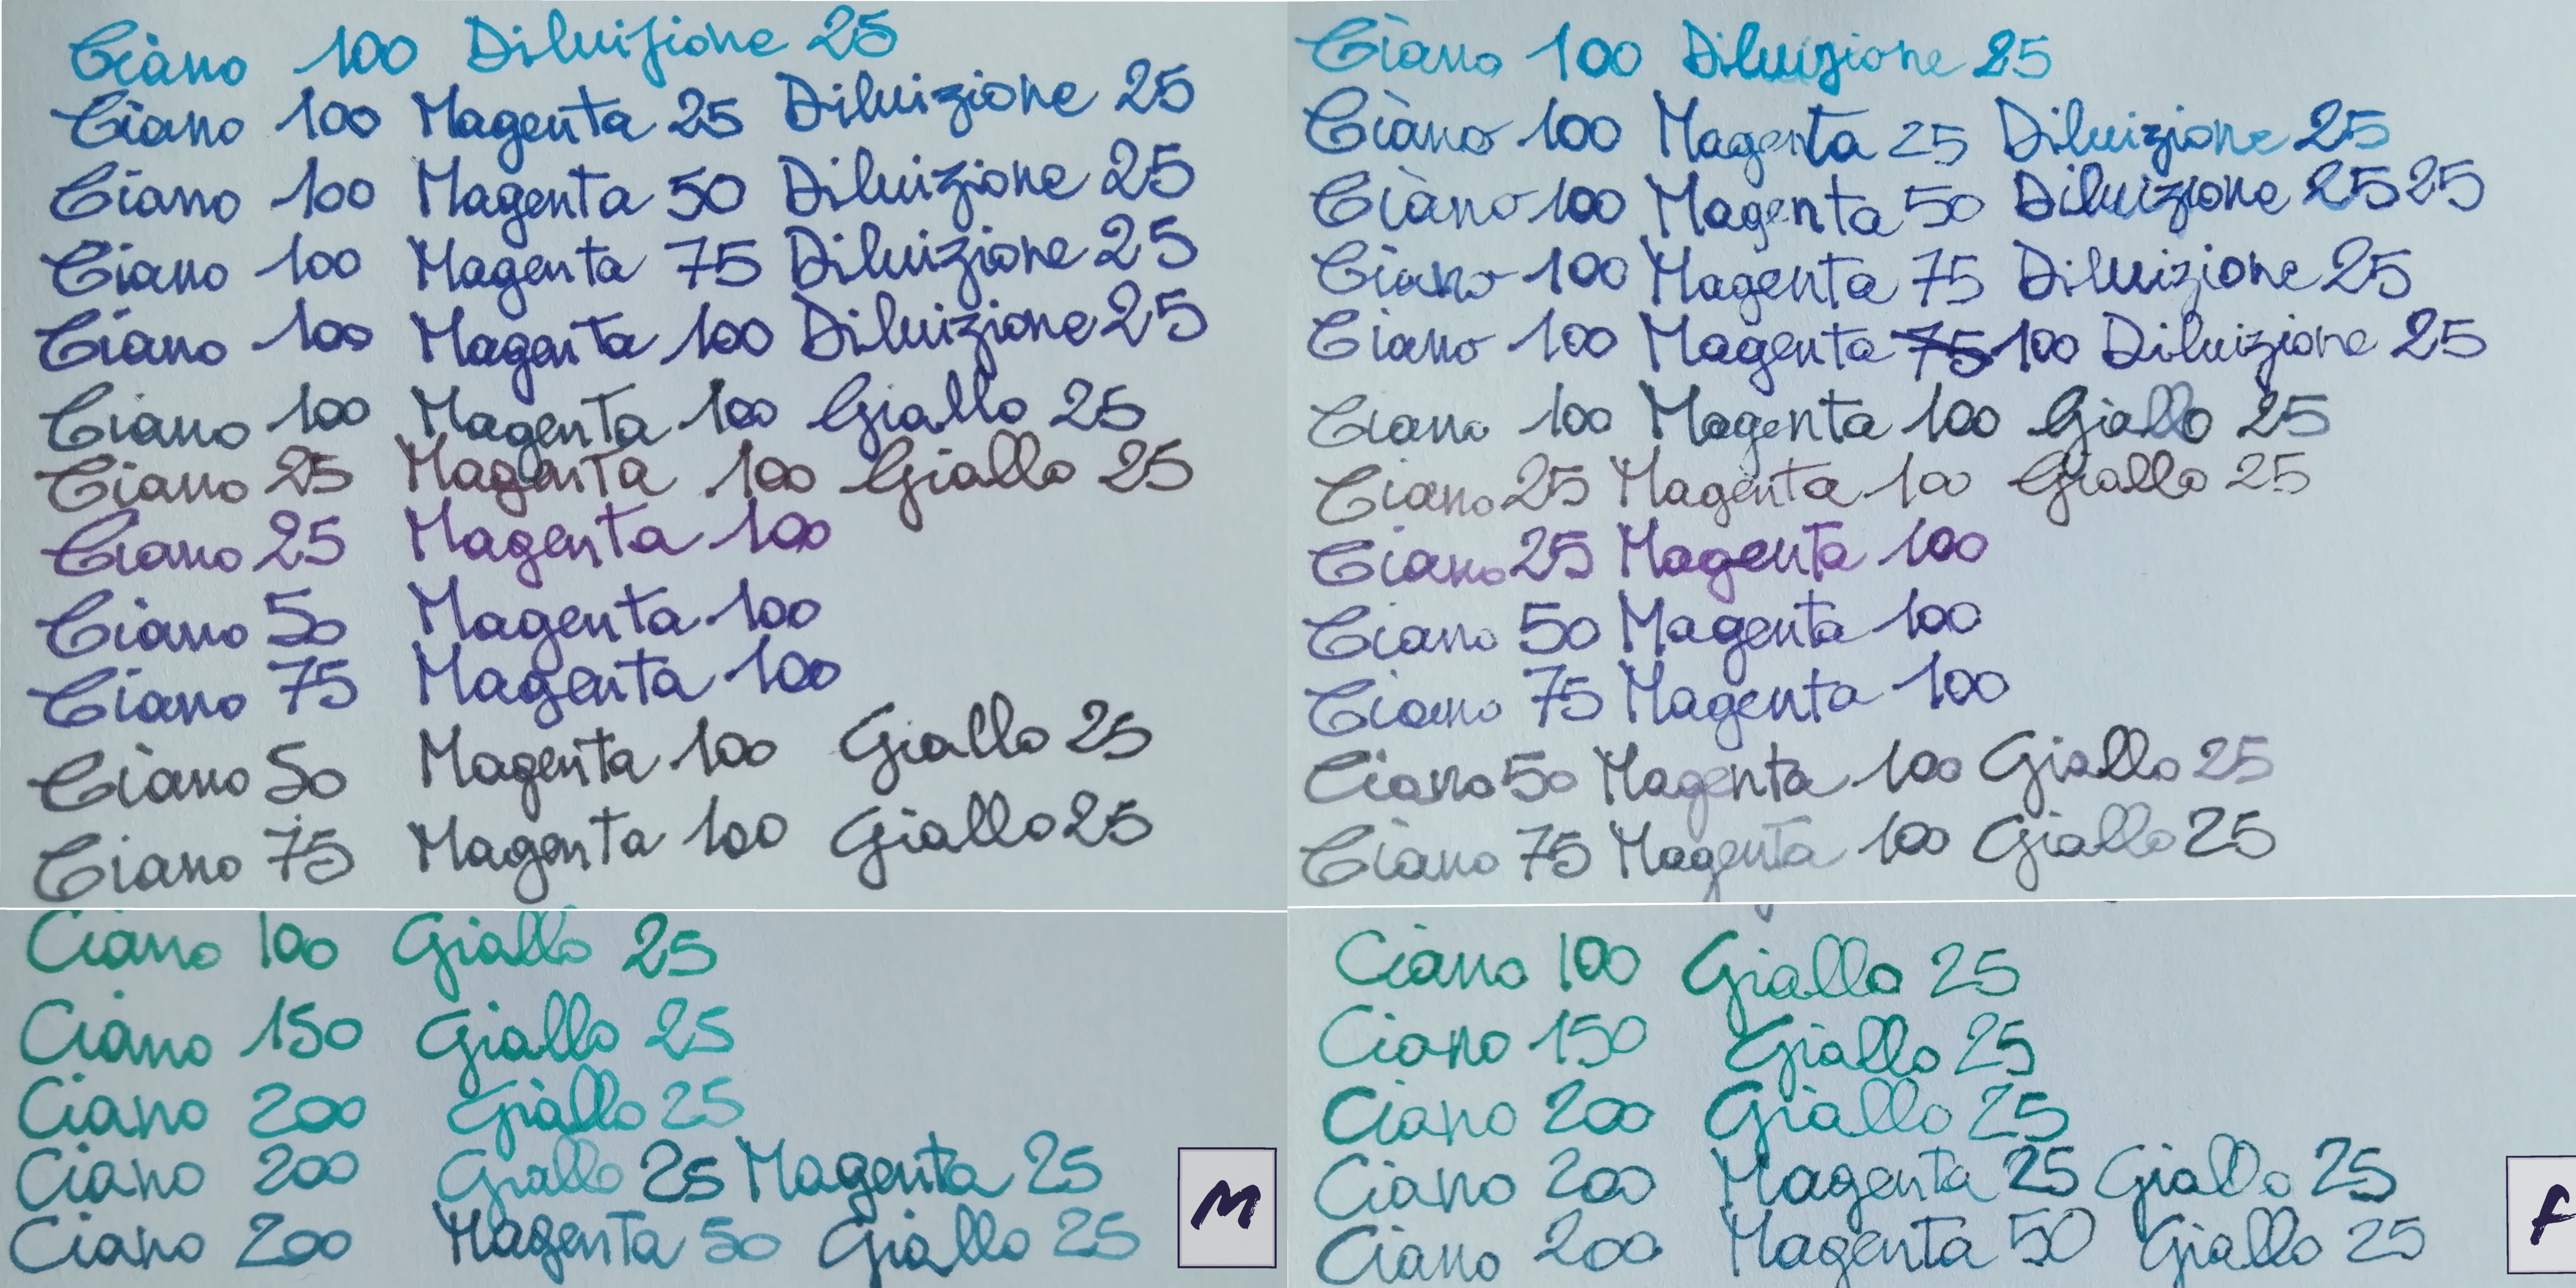 Ciano 100 Diluizione 25
Ciano 100 Magenta 25 Diluizione 25
Ciano 100 Magenta 50 Diluizione 25
Ciano 100 Magenta 75 Diluizione 25
Ciano 100 Magenta 100 Diluizione 25
Ciano 100 Magenta 100 Giallo 25
Ciano 25 Magenta 100 Giallo 25
Ciano 25 Magenta 100
Ciano 50 Magenta 100
Ciano 75 Magenta 100
Ciano 50 Magenta 100 Giallo 25
Ciano 75 Magenta 100 Giallo 25
Ciano 100 Diluizione 25
Ciano 100 Magenta 25 Diluizione 25
Ciano 100 Magenta 50 Diluizione 25 25
Ciano 100 Magenta 75 Diluizione 25
Ciano 100 Magenta 75 100 Diluizione 25
Ciano 100 Magenta 100 Giallo 25
Ciano 25 Magenta 100 Giallo 25
Ciano 25 Magenta 100
Ciano 50 Magenta 100
Ciano 75 Magenta 100
Ciano 50 Magenta 100 Giallo 25
Ciano 75 Magenta 100 Giallo 25
Ciano 100 Giallo 25
Ciano 150 Giallo 25
Ciano 200 Giallo 25
Ciano 200 Giallo 25 Magenta 25
Ciano 200 Magenta 50 Giallo 25
M
Ciano 100 Giallo 25
Ciano 150 Giallo 25
Ciano 200 Giallo 25
Ciano 200 Magenta 25 Giallo 25
Ciano 200 Magenta 50 Giallo 25
F